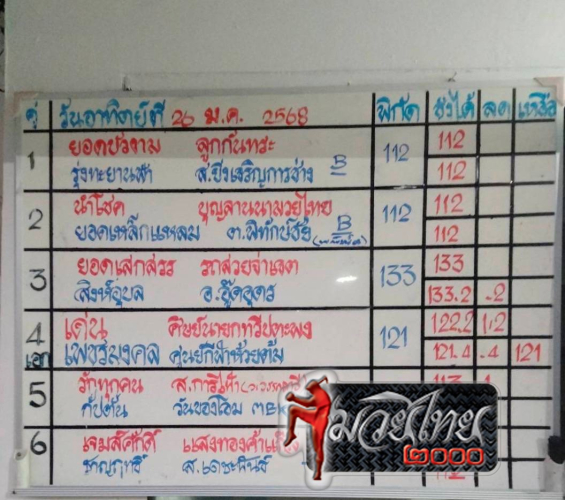 คู่ วันอาทิตย์ที่ 26 ม.ค. 2568 พิกัด ชั่งได้ ลด เหลือ
1 ยอดบัวงาม ลูกกันทระ 112 112
รุ่งทะยานฟ้า ส.ยิ่งเจริญการช่าง B 112
2 นำโชค บุญลานนามวยไทย 112 112
ยอดเหล็กแหลม ต.พิทักษ์ชัย B 112
3 ยอดเสกสรร รถสวยจ่าเจต 133 133
สิงห์อุบล อ.อู๊ดอุดร 133.2 .2
4 เด่น ศิษย์นายกทวีปตะพง 121 122.2 1.2
เอก เพชรมงคล ศูนย์กีฬาห้วยต้ม 121.4 .4 121
5 รักทุกคน
กัปตัน วันของโอม MBK
6 เจมส์ศักดิ์ แสงทองค้า
ชาญฤทธิ์ ส.เดชะพันธ์
มวยไทย
๒๐๐๐